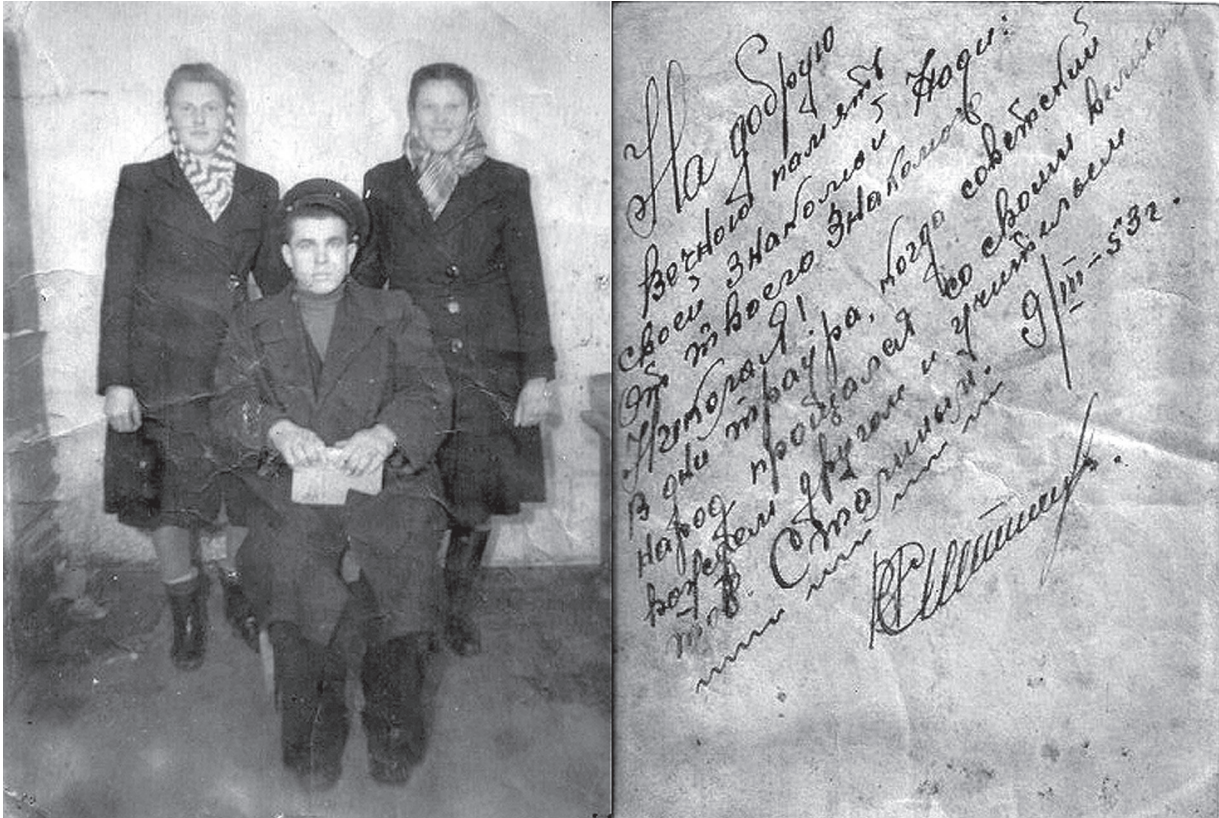 На добрую
вечную память
своей знакомой Нади:
От твоего знакомого
Николая!
В дни траура, когда советский
народ прощался со своим великим
вождем другом и учителем
тов. Сталиным. 9/III-53г.